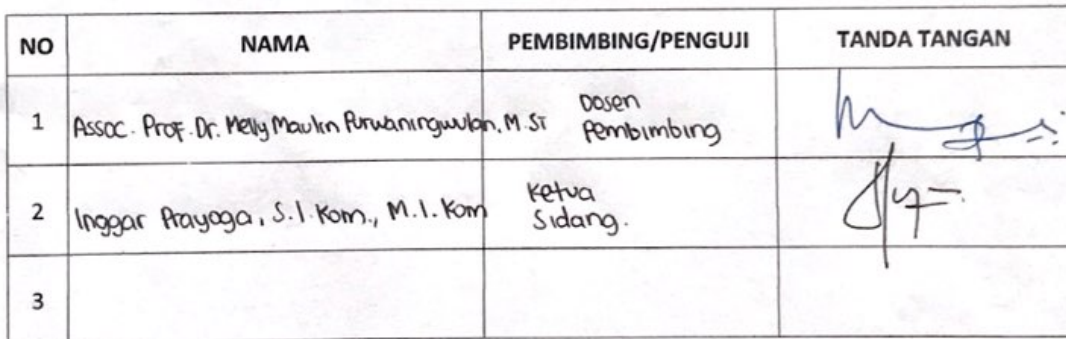 NO NAMA PEMBIMBING/PENGUJI TANDA TANGAN
1 Assoc. Prof. Dr. Melly Maulin Purwaningwulan, M.Si Dosen Pembimbing
2 Inggar Prayoga, S.I.Kom., M.I.Kom Ketua Sidang.
3